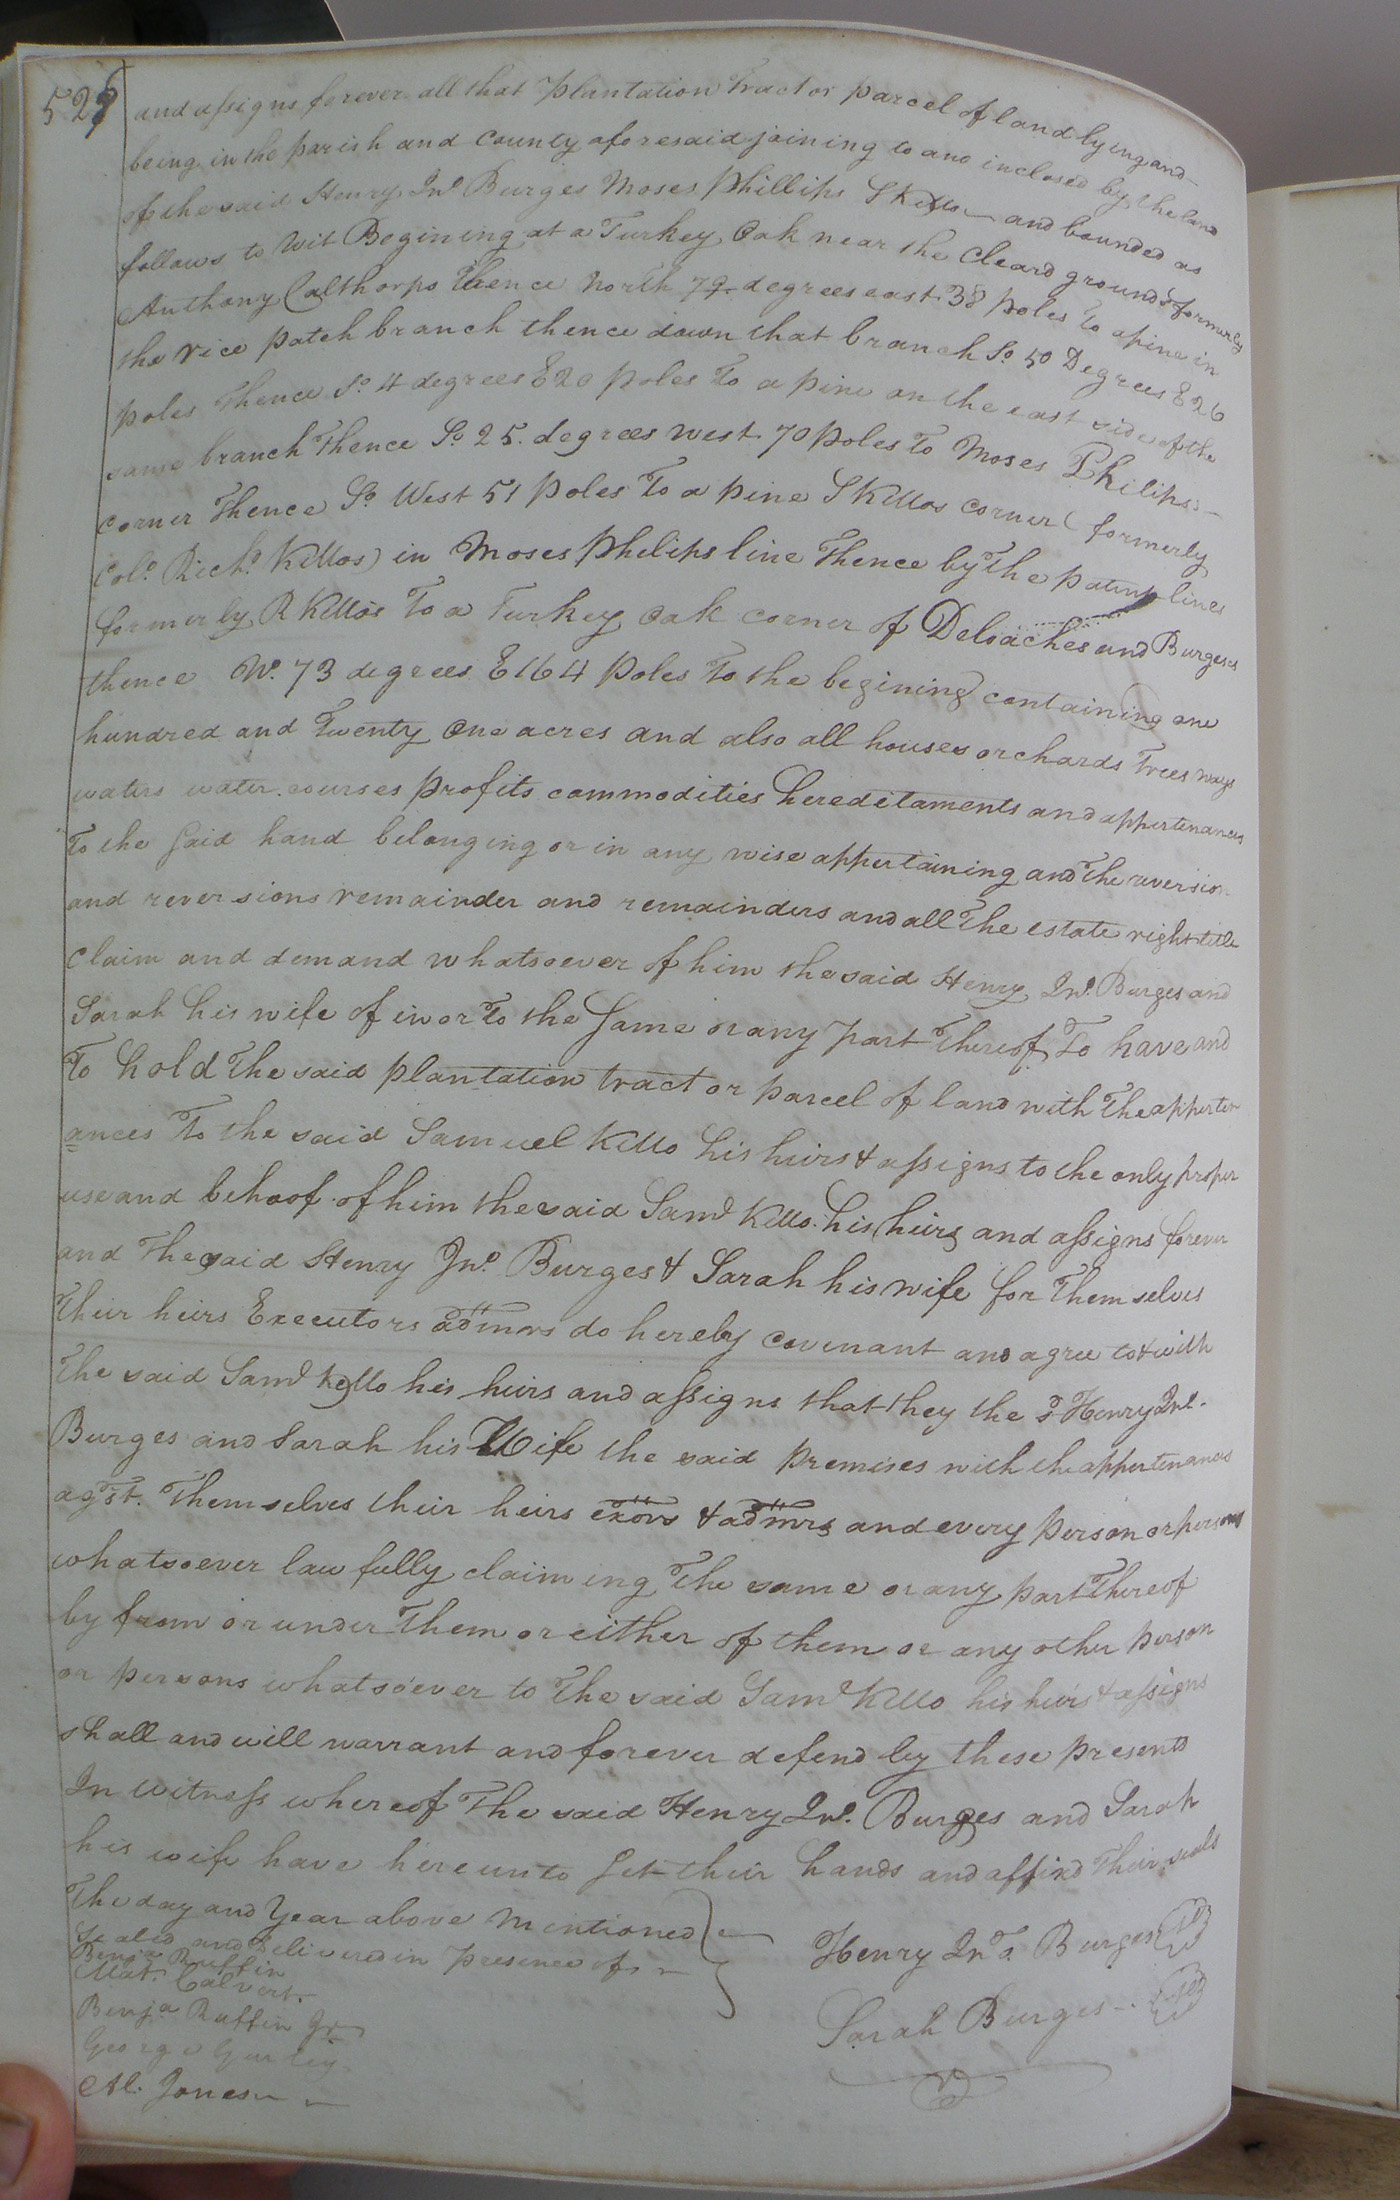 529
and assigns forever all that plantation tract or parcel of land lying and
being in the parish and county aforesaid joining to and inclosed by the land
of the said Henry Jnº Burges Moses Phillips S Kello and bounded as
follows to Wit Begining at a Turkey Oak near the Cleard ground formerly
Anthony Calthorps thence North 79 degrees east 38 poles to a pine in
the rice patch branch thence down that branch Sº 50 Degrees E 26
poles Thence Sº 4 degrees E 20 poles To a pine on the east side of the
same branch Thence Sº 25 degrees west 70 poles To Moses Philips
corner Thence Sº West 51 poles To a pine S Kellos corner (formerly
Colº Richd Kellos) in Moses Philips line Thence by The patent lines
formerly R Kellos To a Turkey Oak corner of Deloaches and Burgeses
thence Nº 73 degrees E 164 poles To the begining containing one
hundred and Twenty One acres and also all houses orchards Trees ways
waters water courses profits commodities hereditaments and appertenances
To the said hand belonging or in any wise appertaining and The reversion
and reversions remainder and remainders and all The estate right title
claim and demand whatsoever of him the said Henry Jnº Burges and
Sarah his wife of in or To the same or any part Thereof To have and
To hold The said plantation tract or parcel of land with The apperten
ances To the said Samuel Kello his heirs & assigns to the only proper
use and behoof of him the said Saml Kello his heirs and assigns forever
and The said Henry Jnº Burges & Sarah his wife for Themselves
Their heirs Executors admors do hereby covenant and agree to & with
The said Saml Kello his heirs and assigns that they the sd Henry Jnº
Burges and Sarah his Wife the said premises with the appertenances
agst. Themselves their heirs exors & admrs and every person or persons
whatsoever lawfully claiming The same or any part Thereof
by from or under Them or either of them or any other person
or persons whatsoever to The said Saml Kello his heirs & assigns
shall and will warrant and forever defend by these presents
In witness whereof The said Henry Jnº. Burges and Sarah
his wife have hereunto set their hands and affixd Their seals
The day and Year above Mentioned
Sealed and Delivered in presence of
Henry Jnº. Burges
Benja Ruffin
Mat. Calvert
Sarah Burges
Benja Ruffin Jr
George Gurley
Al. Jones